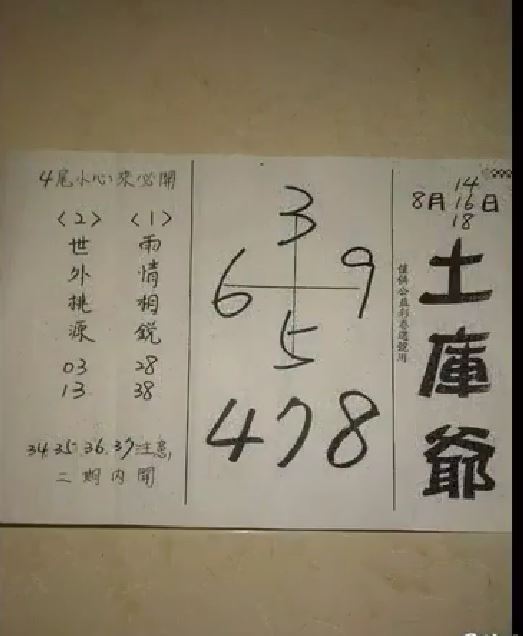 14
8月16日
18
土庫爺
僅供公益彩卷選號用
3
6 9
5
478
4尾小心來必開
〈1〉
雨情相鋭
28
38
〈2〉
世外桃源
03
13
34.35.36.37注意,
二期内開